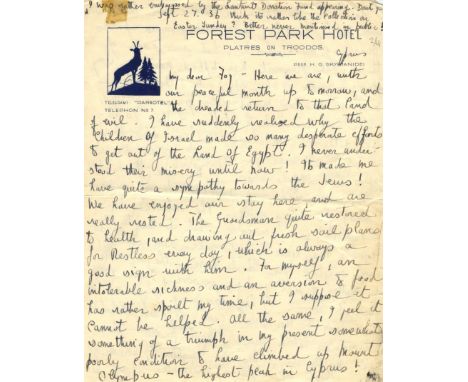 I was rather embarrassed by the Lantirit Donation Fund appearing. Don't you
think its rather like the Collection on
Sept 27. '36
Easter Sunday? Better never mentioned in public!
FOREST PARK HOTEL
PLATRES ON TROODOS.
Cyprus
(PROP. H. G. SKYRIANIDES)
TELEGRAMS: "PARKOTEL"
TELEPHONE No 7.
My dear Fog - Here we are, with
our peaceful month up tomorrow, and
the dreaded return to that Land
of evil. I have suddenly realised why the
Children of Israel made so many desperate efforts
to get out of the Land of Egypt. I never under-
stood their misery until now! It's made me
have quite a sympathy towards the Jews!
We have enjoyed our stay here, and are
really rested. The Guardsman quite restored
to health, and drawing out fresh sail plans
for Restless every day, which is always a
good sign with him. For myself, an
intolerable sickness and an aversion to food
has rather spoilt my time, but I suppose it
cannot be helped. All the same, I feel it
something of a triumph in my present somewhat
poorly condition to have climbed up Mount
Olympus - the highest peak in Cyprus!